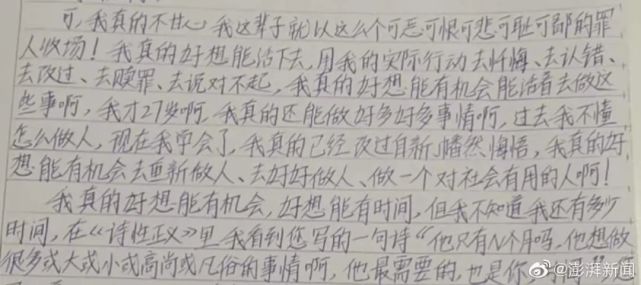 可，我真的不甘心我这辈子就以这么个可恶可恨可悲可耻可鄙的罪
人收场！我真的好想能活下去，用我的实际行动去忏悔、去认错、
去改过、去赎罪、去说对不起，我真的好想能有机会能活着去做这
些事啊，我才27岁啊，我真的还能做好多好多事情啊，过去我不懂
怎么做人，现在我学会了，我真的已经改过自新、幡然悔悟，我真的好
想能有机会去重新做人、去好好做人、做一个对社会有用的人啊！
我真的好想能有机会，好想能有时间，但我不知道我还有多少
时间，在《诗性正义》里我看到您写的一句诗“他只有N个月吗，他想做
很多或大或小或高尚或凡俗的事情啊，他最需要的，也是你
@澎湃新闻